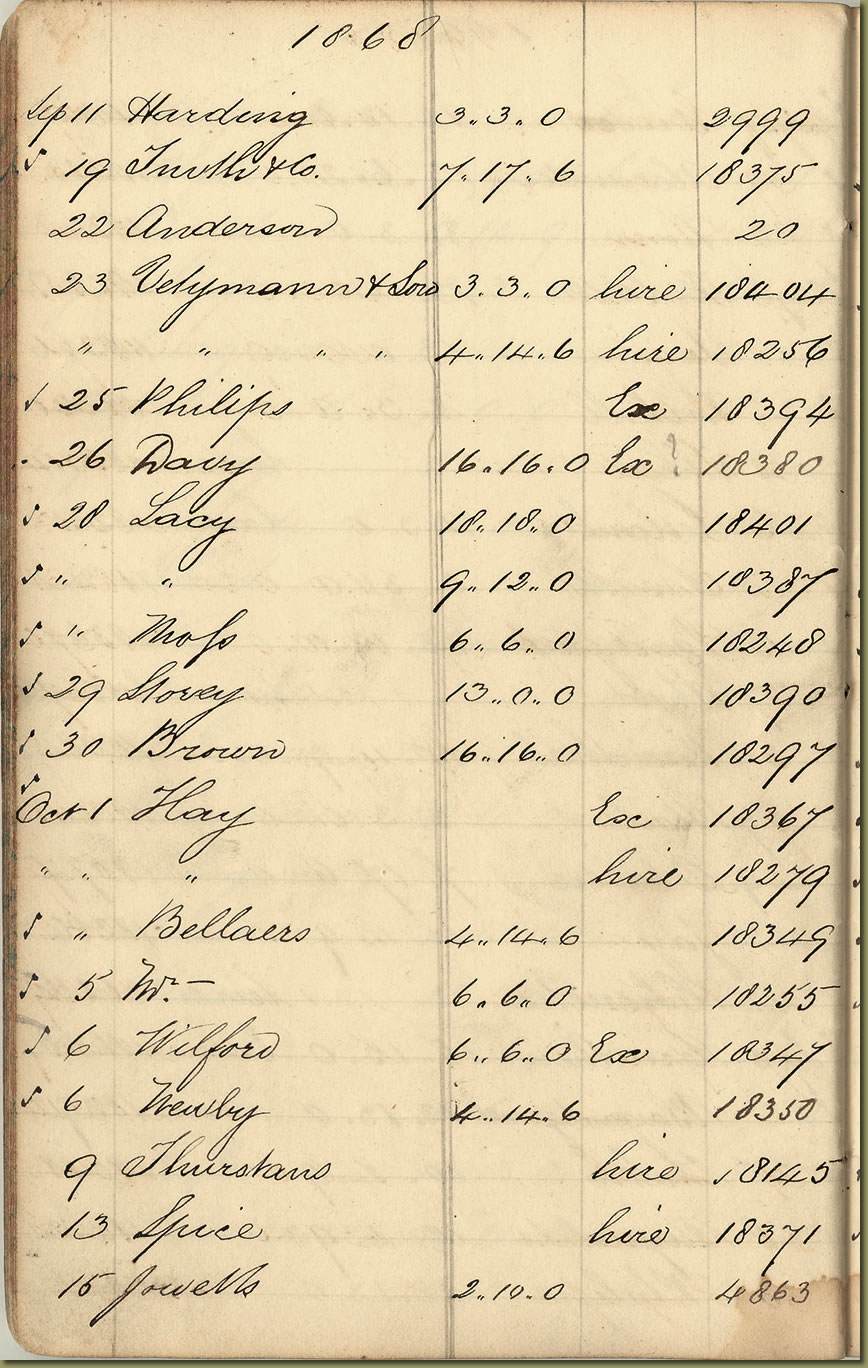 1868
Sep 11 Harding 3..3..0 2999
19 Smith & Co. 7..17..6 18375
22 Anderson 20
23 & Son 3..3..0 hire 18404
" " " " 4..14..6 hire 18256
25 Philips Ex 18394
26 Davy 16..16..0 Ex ? 18380
28 Lacy 18..18..0 18401
" " 9..12..0 18387
" Moss 6..6..0 18248
29 Storey 13..0..0 18390
30 Brown 16..16..0 18297
Oct 1 Hay Ex 18367
" " " hire 18279
" Bellaers 4..14..6 18349
5 Mr. — 6..6..0 18255
6 Wilford 6..6..0 Ex 18347
6 Newby 4..14..6 18350
9 Thurstans hire 18145
13 Spice hire 18371
15 Jowetts 2..10..0 4863